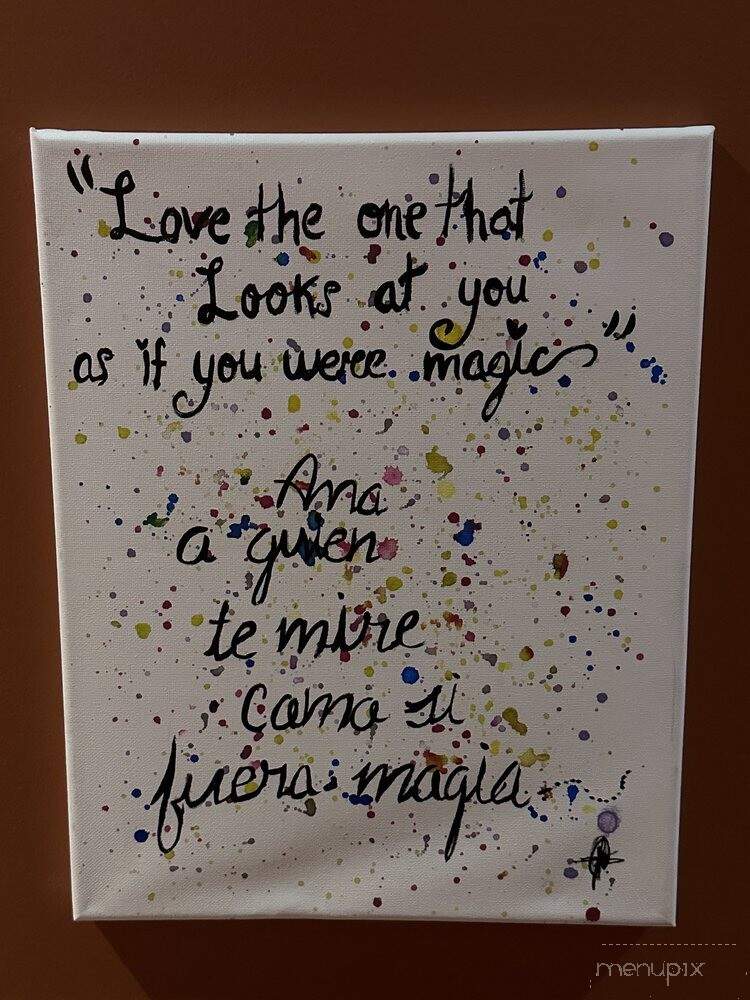 "Love the one that
Looks at you
as if you were magic"
Ama
a quien
te mire
como si
fuera magia
menupix